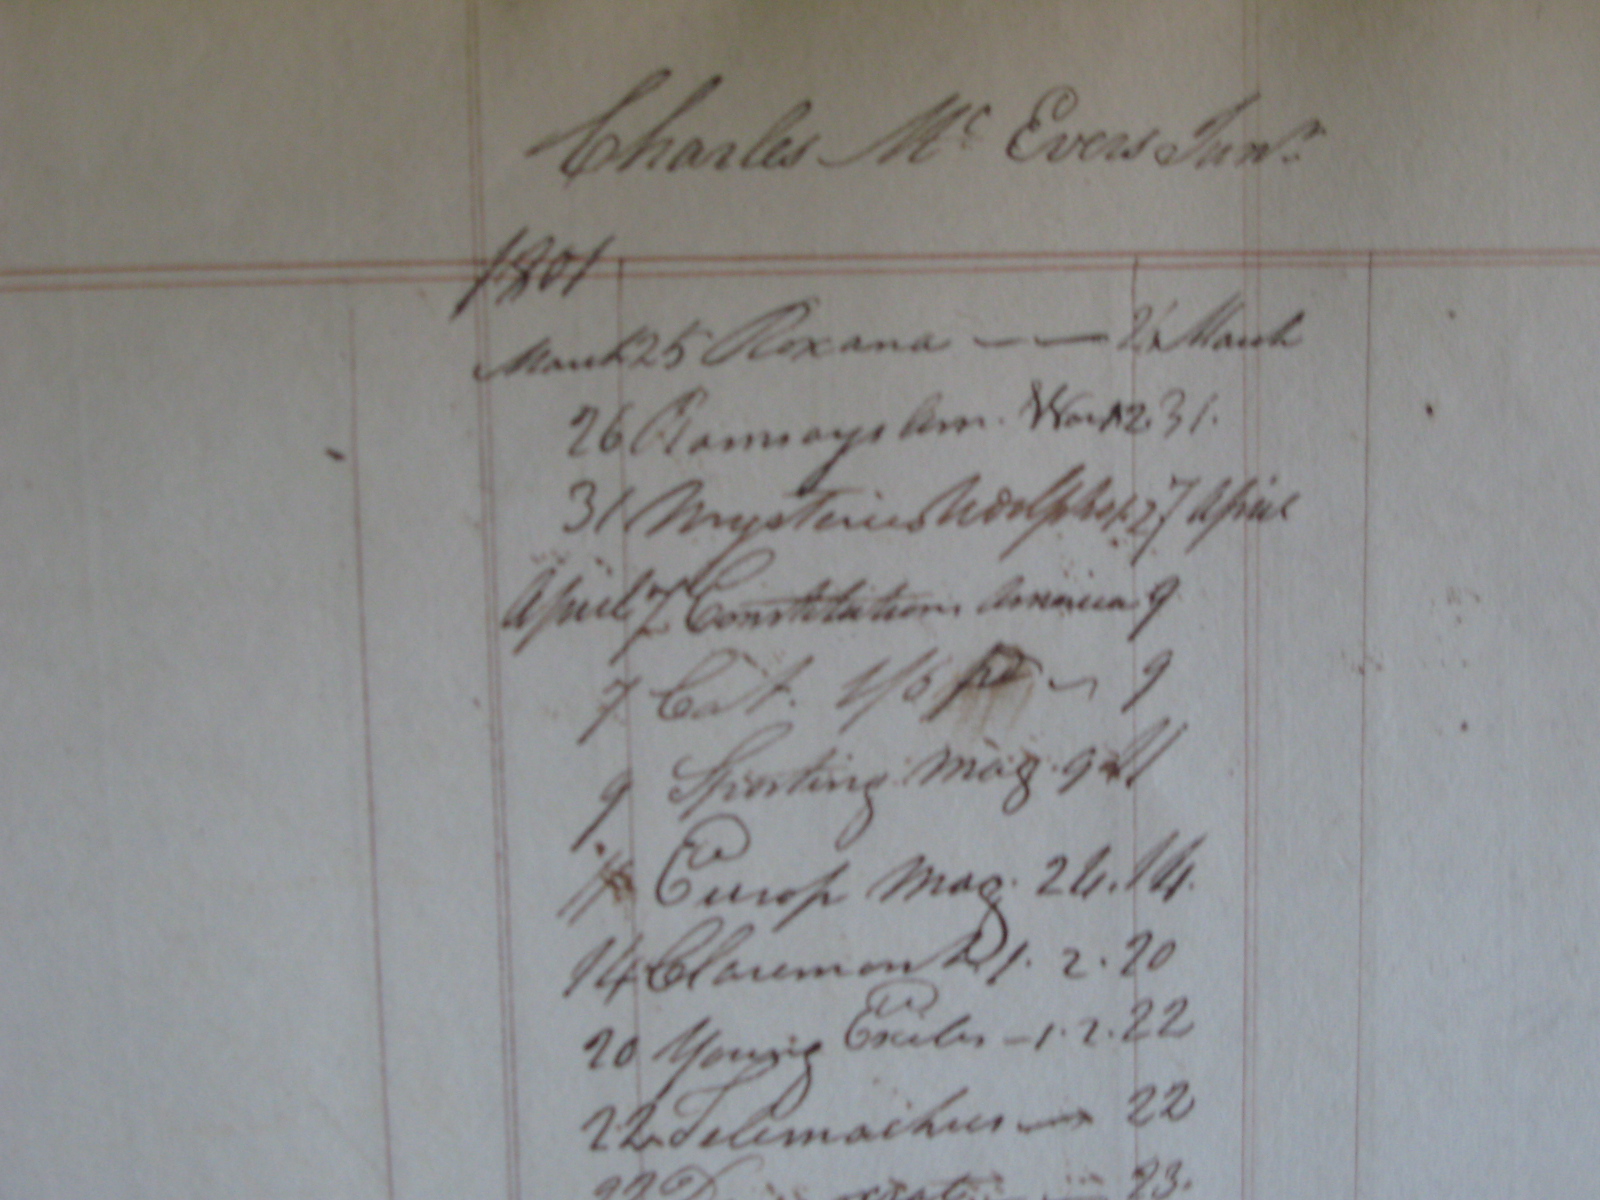 Charles Mc Evers Junr.
1801
March 25 Roxana — — 26 March
26 Ramsays Am. War 1.2 31.
31 Mysteries Udolpho 1.2 7 April
April 7 Constitutions America 9
7 Cat. 1/6 pd — 9
9 Sporting Mag. 9 11
11 Europ Mag. 24. 14.
14 Claremont 1. 2. 20
20 Young Exiles — 1. 2. 22
22 Telemachus — 22
22 23.